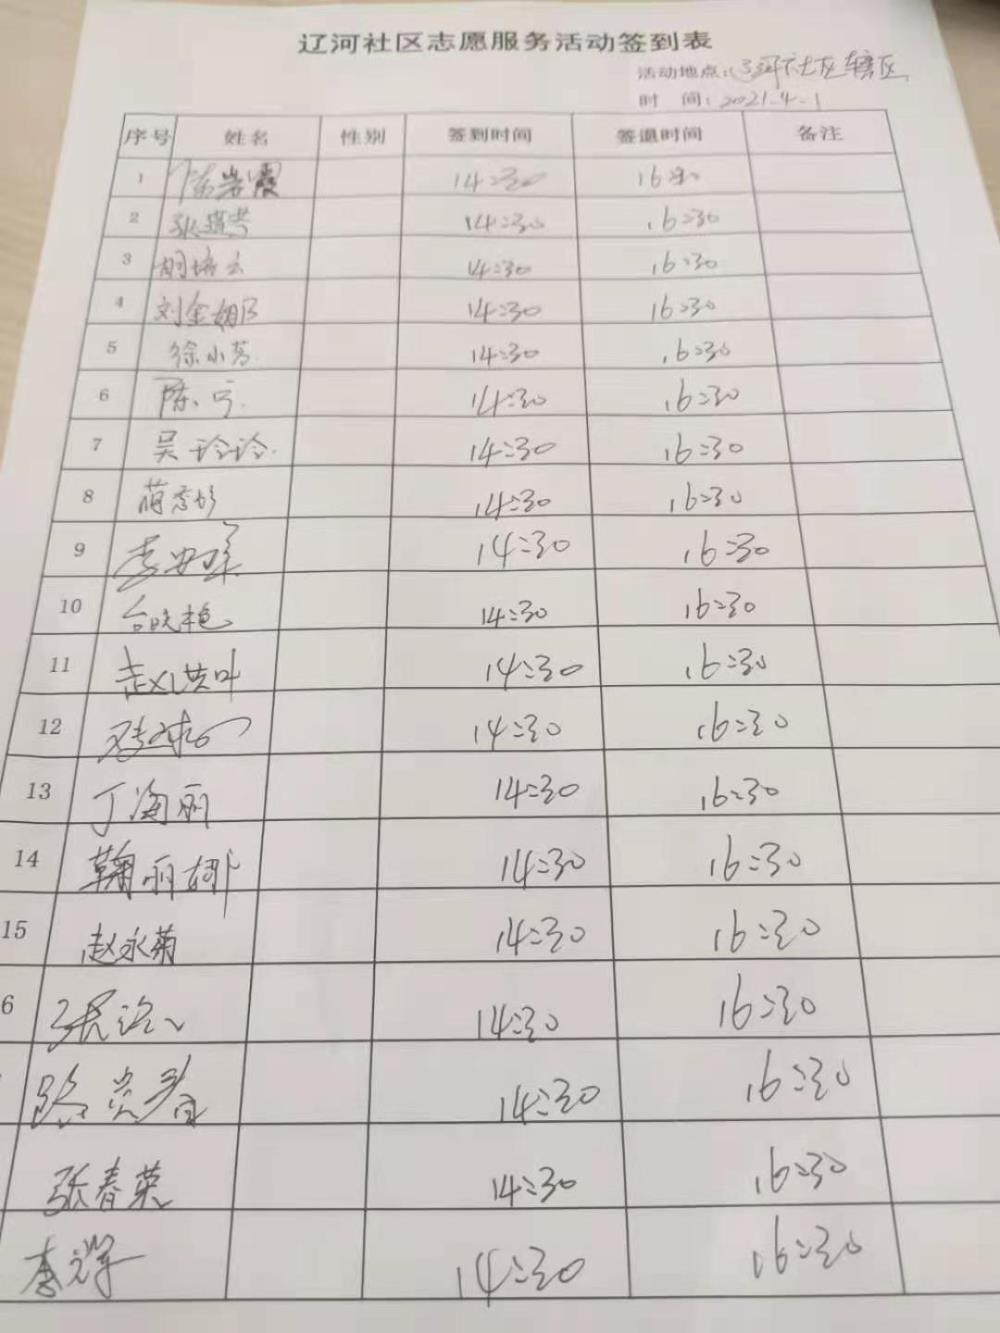 辽河社区志愿服务活动签到表
活动地点:辽河社区辖区
时 间:2021.4.1
序号 姓名 性别 签到时间 签退时间 备注
1 14:30 16:30
2 14:30 16:30
3 胡培云 14:30 16:30
4 刘金娜 14:30 16:30
5 徐小芳 14:30 16:30
6 陈 14:30 16:30
7 吴玲玲 14:30 16:30
8 14:30 16:30
9 14:30 16:30
10 14:30 16:30
11 赵洪叶 14:30 16:30
12 14:30 16:30
13 丁海丽 14:30 16:30
14 鞠丽娜 14:30 16:30
15 赵永菊 14:30 16:30
6 14:30 16:30
14:30 16:30
张春荣 14:30 16:30
14:30 16:30